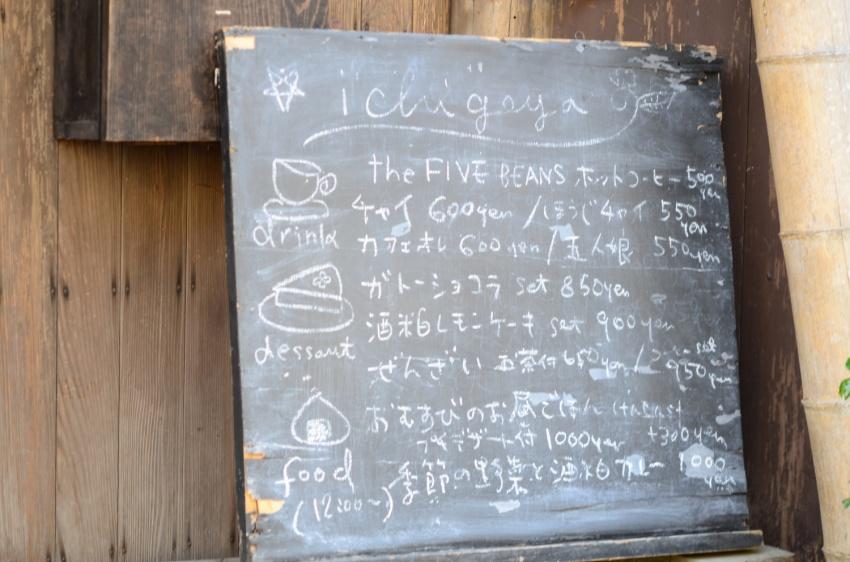 ichigoya
the FIVE BEANS ホットコーヒー 500yen
チャイ 600yen /ほうじチャイ 550yen
drink
カフェオレ 600yen /玉人娘 550yen
ガトーショコラ set 850yen
酒粕レモンケーキ set 900yen
dessart
ぜんざい お茶付650yen/ set 950yen
おむすびのお昼ごはん
プチデザート付 1000yen +300yen
food
季節の野菜と酒粕カレー 1000yen
(12:00~)